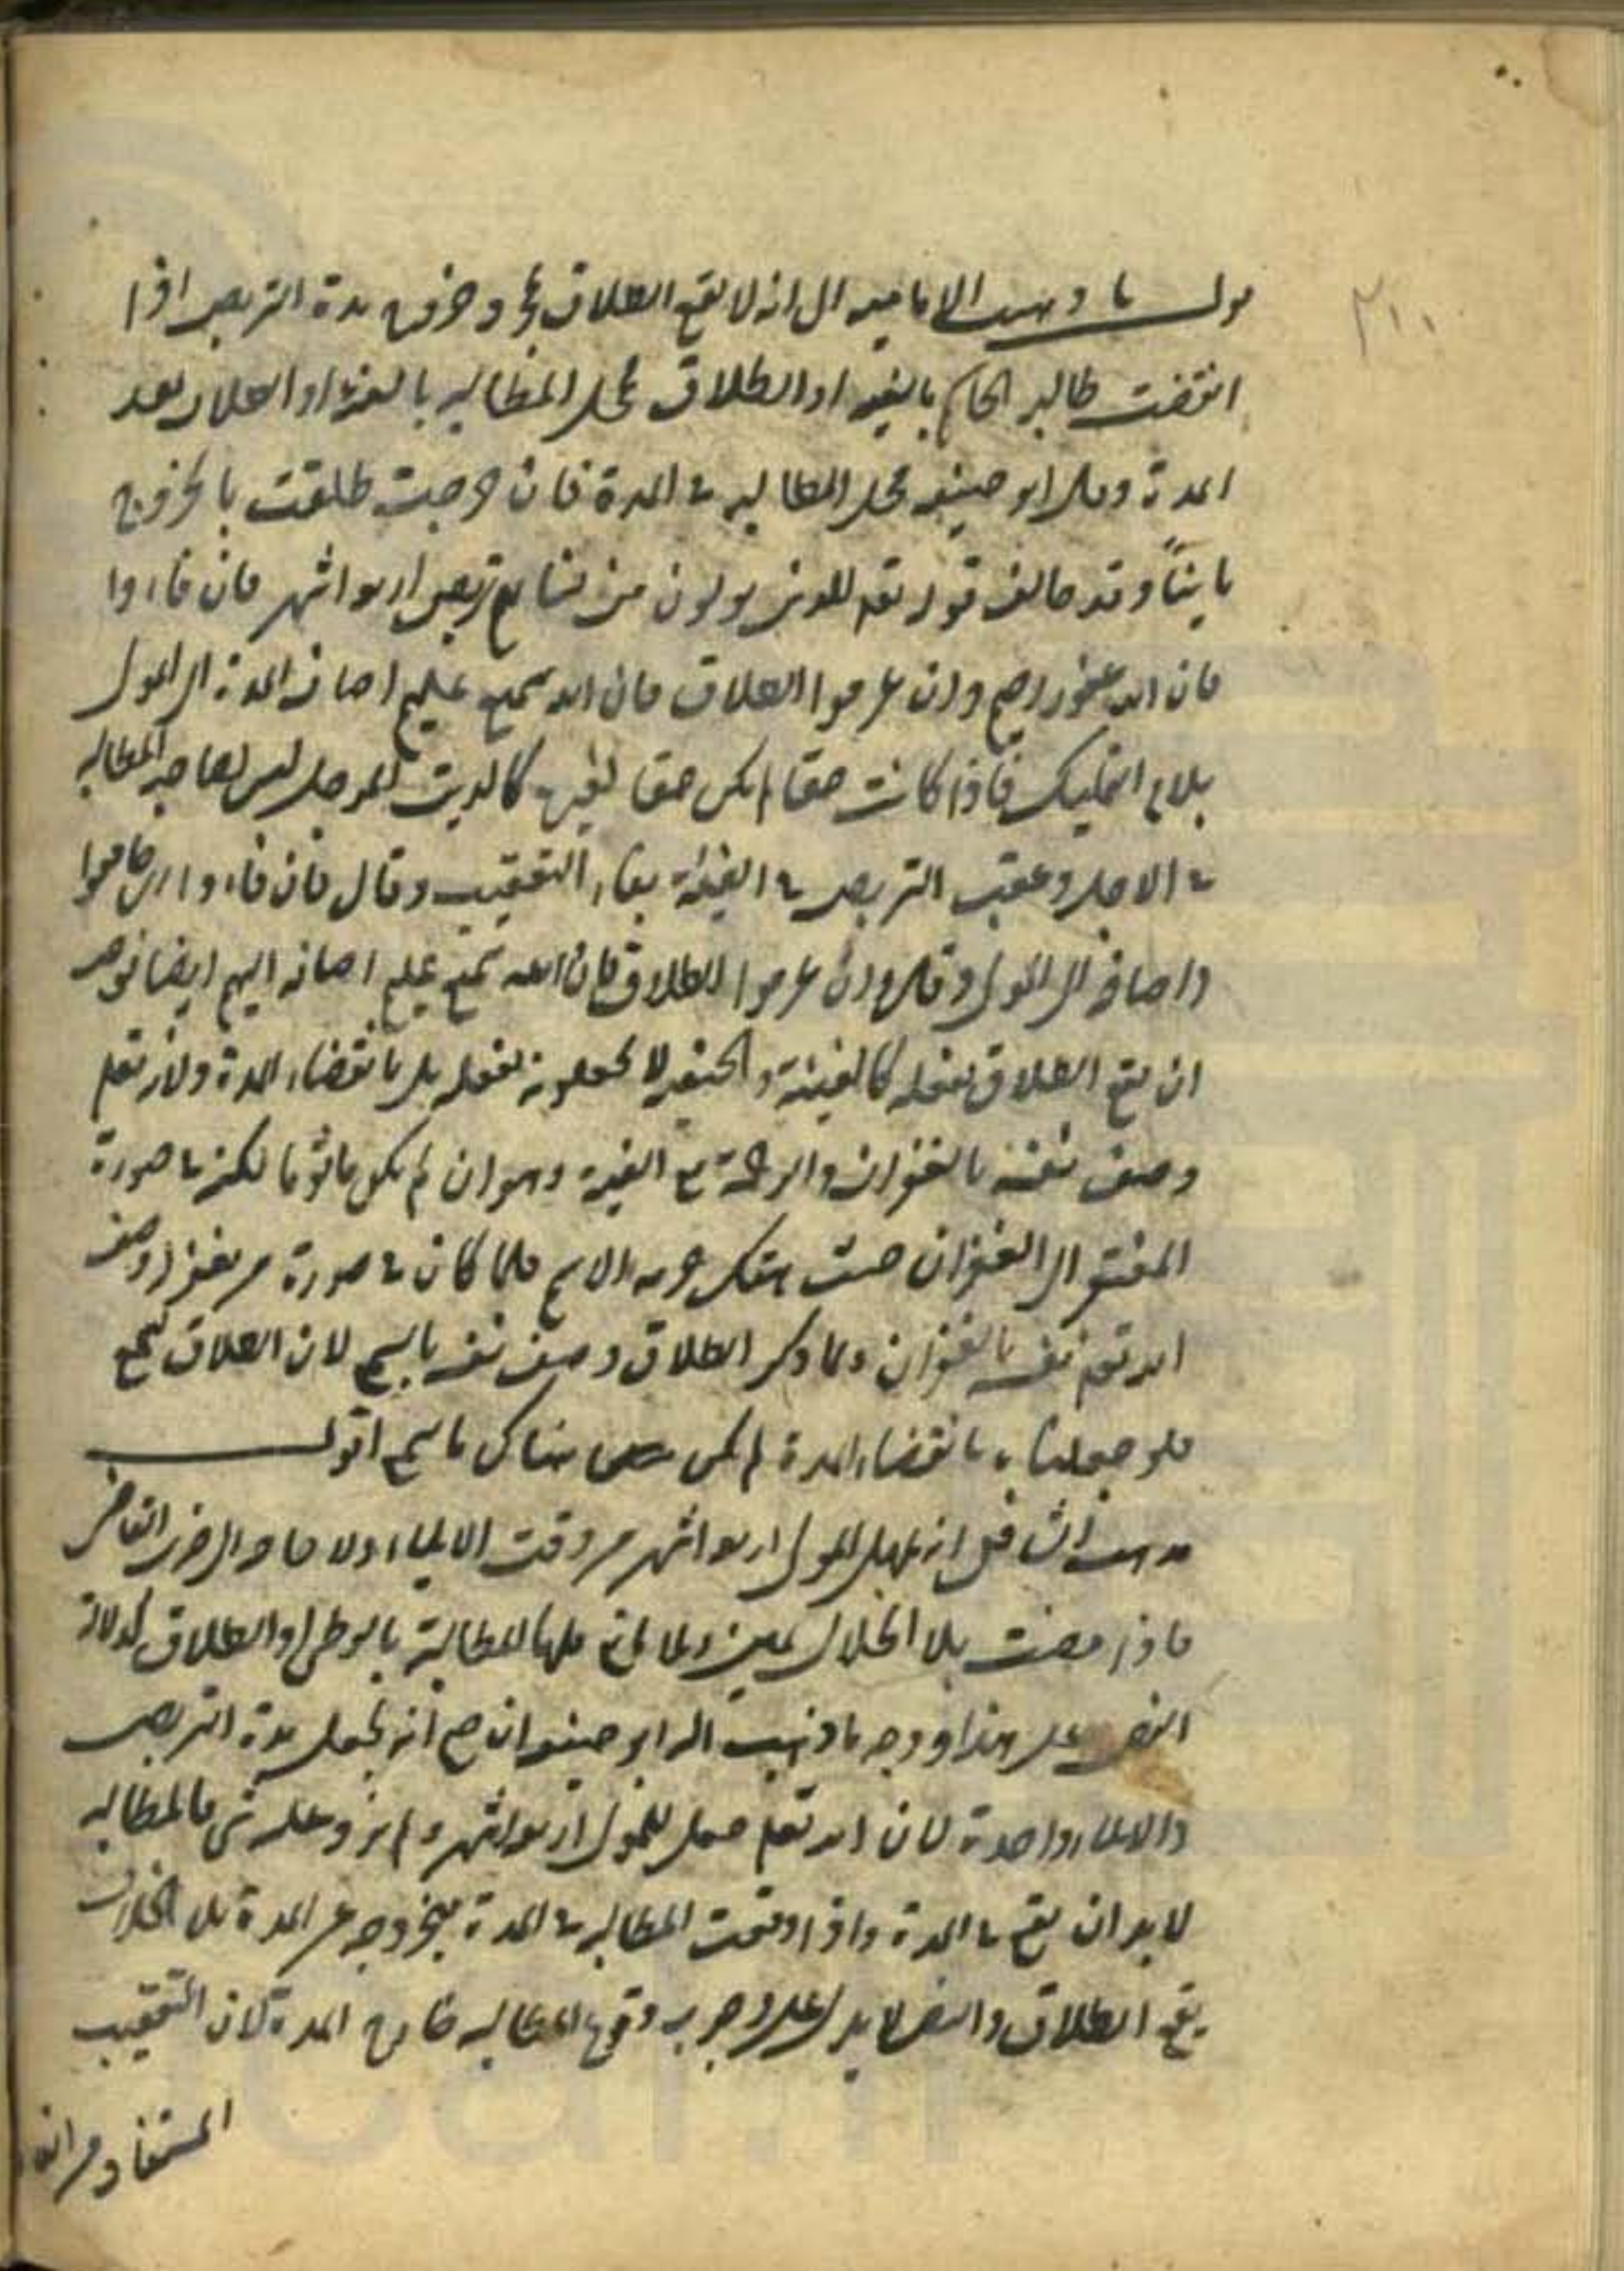 ٢١١
ذهبت الامامية الى انه لا يقع الطلاق بمجرد خروج مدة التربص اذا
انقضت طالبه الحاكم بالفئة او الطلاق محل المطالبة بالفئة او الطلاق بعد
المدة وقال ابو حنيفة محل المطالبة في المدة فان خرجت طلقت بالخروج
بايناً وقد خالف قوله تعالى للذين يولون من نسائهم تربص اربعة اشهر فان فاءوا
فان الله غفور رحيم وان عزموا الطلاق فان الله سميع عليم اضاف المدة الى المولى
بلام التمليك فاذا كانت حقا لم يكن حقا لغيره كالدين المؤجل ليس لصاحبه المطالبة
في الاجل وعقب التربص في الفيئة بفاء التعقيب وقال فان فاءوا اي جامعوا
واضافه الى المولى وقال وان عزموا الطلاق فان الله سميع عليم اضافه اليهم ايضا فوجب
ان يقع الطلاق بفعله كالفيئة والحنفية لا يجعلونه بفعله بل بانقضاء المدة ولانه تعالى
وصف نفسه بالغفران والرحمة مع الفيئة وهو ان لم يكن ماثوما لكنه في صورة
المفتقر الى الغفران حيث هتك حرمة الاسم فلما كان في صورة من يغفر له وصف
الله تعالى نفسه بالغفران ولما ذكر الطلاق وصف نفسه بالسميع لان الطلاق يسمع
فلو جعلناه بانقضاء المدة لم يكن هناك ما يسمع اقول
مذهب الشافعي انه يمهل المولى اربعة اشهر من وقت الايلاء ولا حاجة الى ضرب القاضي
فاذا مضت بلا انحلال يمين ولا مانع فلها المطالبة بالوطي او الطلاق لدلالة
النص على هذا ووجه ما ذهب اليه ابو حنيفة ان صح انه يجعل مدة التربص
والايلاء واحدة لان الله تعالى جعل للمولى اربعة اشهر ولم يزد عليه شي فالمطالبة
لا بد ان يقع في المدة واذا وقعت المطالبة في المدة فبخروجه عن المدة بلا انحلال
يقع الطلاق والنص لا يدل على وجوب وقوع المطالبة خارج المدة لان التعقيب
المستفاد من الفاء